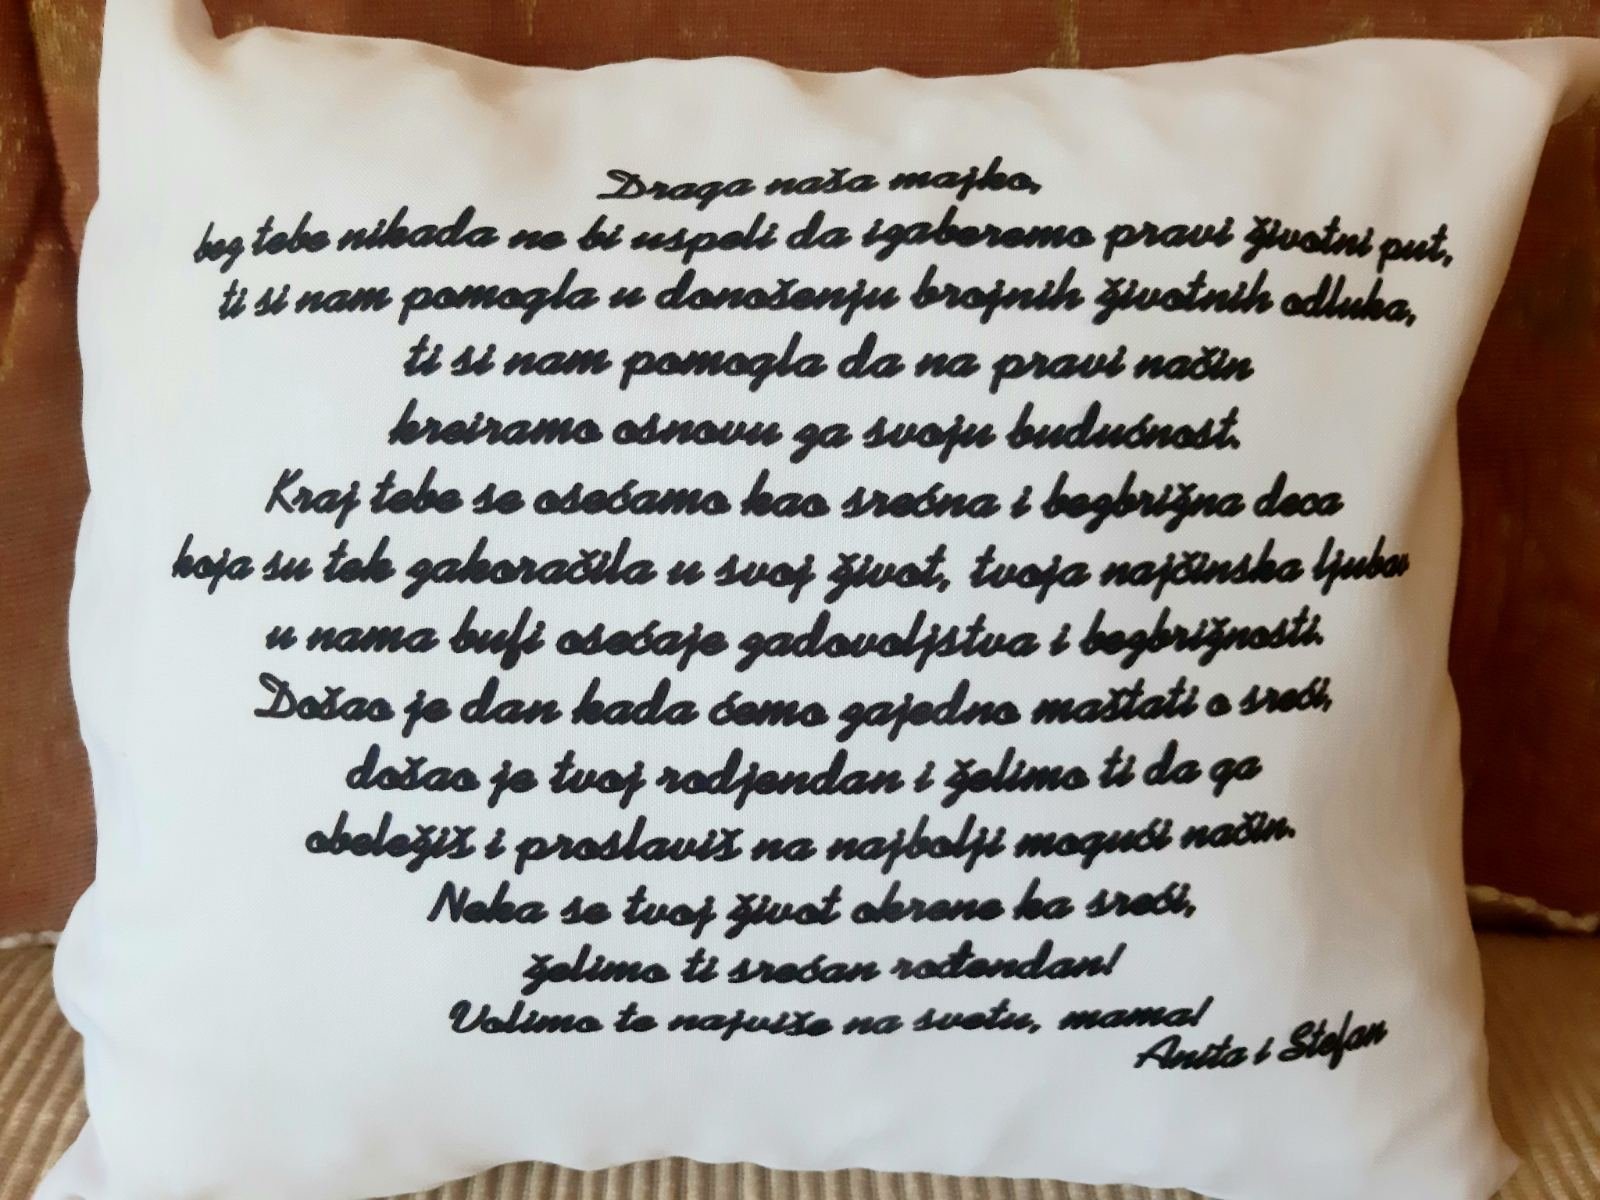 Draga naša majko,
bez tebe nikada ne bi uspeli da izaberemo pravi životni put,
ti si nam pomogla u donošenju brojnih životnih odluka,
ti si nam pomogla da na pravi način
kreiramo osnovu za svoju budućnost.
Kraj tebe se osećamo kao srećna i bezbrižna deca
koja su tek zakoračila u svoj život, tvoja najčinska ljubav
u nama budi osećaje zadovoljstva i bezbrižnosti.
Došao je dan kada ćemo zajedno maštati o sreći,
došao je tvoj rodjendan i želimo ti da ga
obeležiš i proslaviš na najbolji mogući način.
Neka se tvoj život okrene ka sreći,
želimo ti srećan rođendan!
Volimo te najviše na svetu, mama!
Anita i Stefan